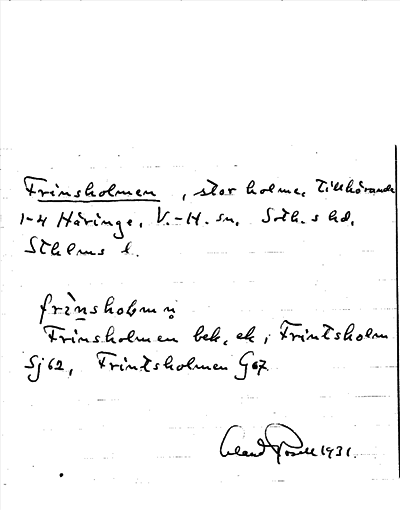 Frinsholmen, stor holme, tillhörande
1-4 Häringe, V.-H. sn, Soth.s hd,
Sthlms l.
frìnshobmn̥
Frinsholmen bek. ek; Frintsholm
Sj 62, Frintsholmen G 67
1931.